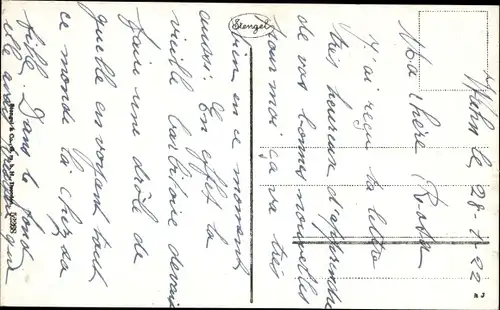 Hahn le, 28-7-22
Ma Chère Rosa
J'ai reçu ta lettre
très heureux d'apprendre
de vos bonnes nouvelles
pour moi ça va très
bien en ce moment
aussi. En effet la
vieille barbiboire devait
faire une drôle de
guelle en voyant tout
ce monde là chez sa
fille. Dans le fond
elle avait que
Stengel